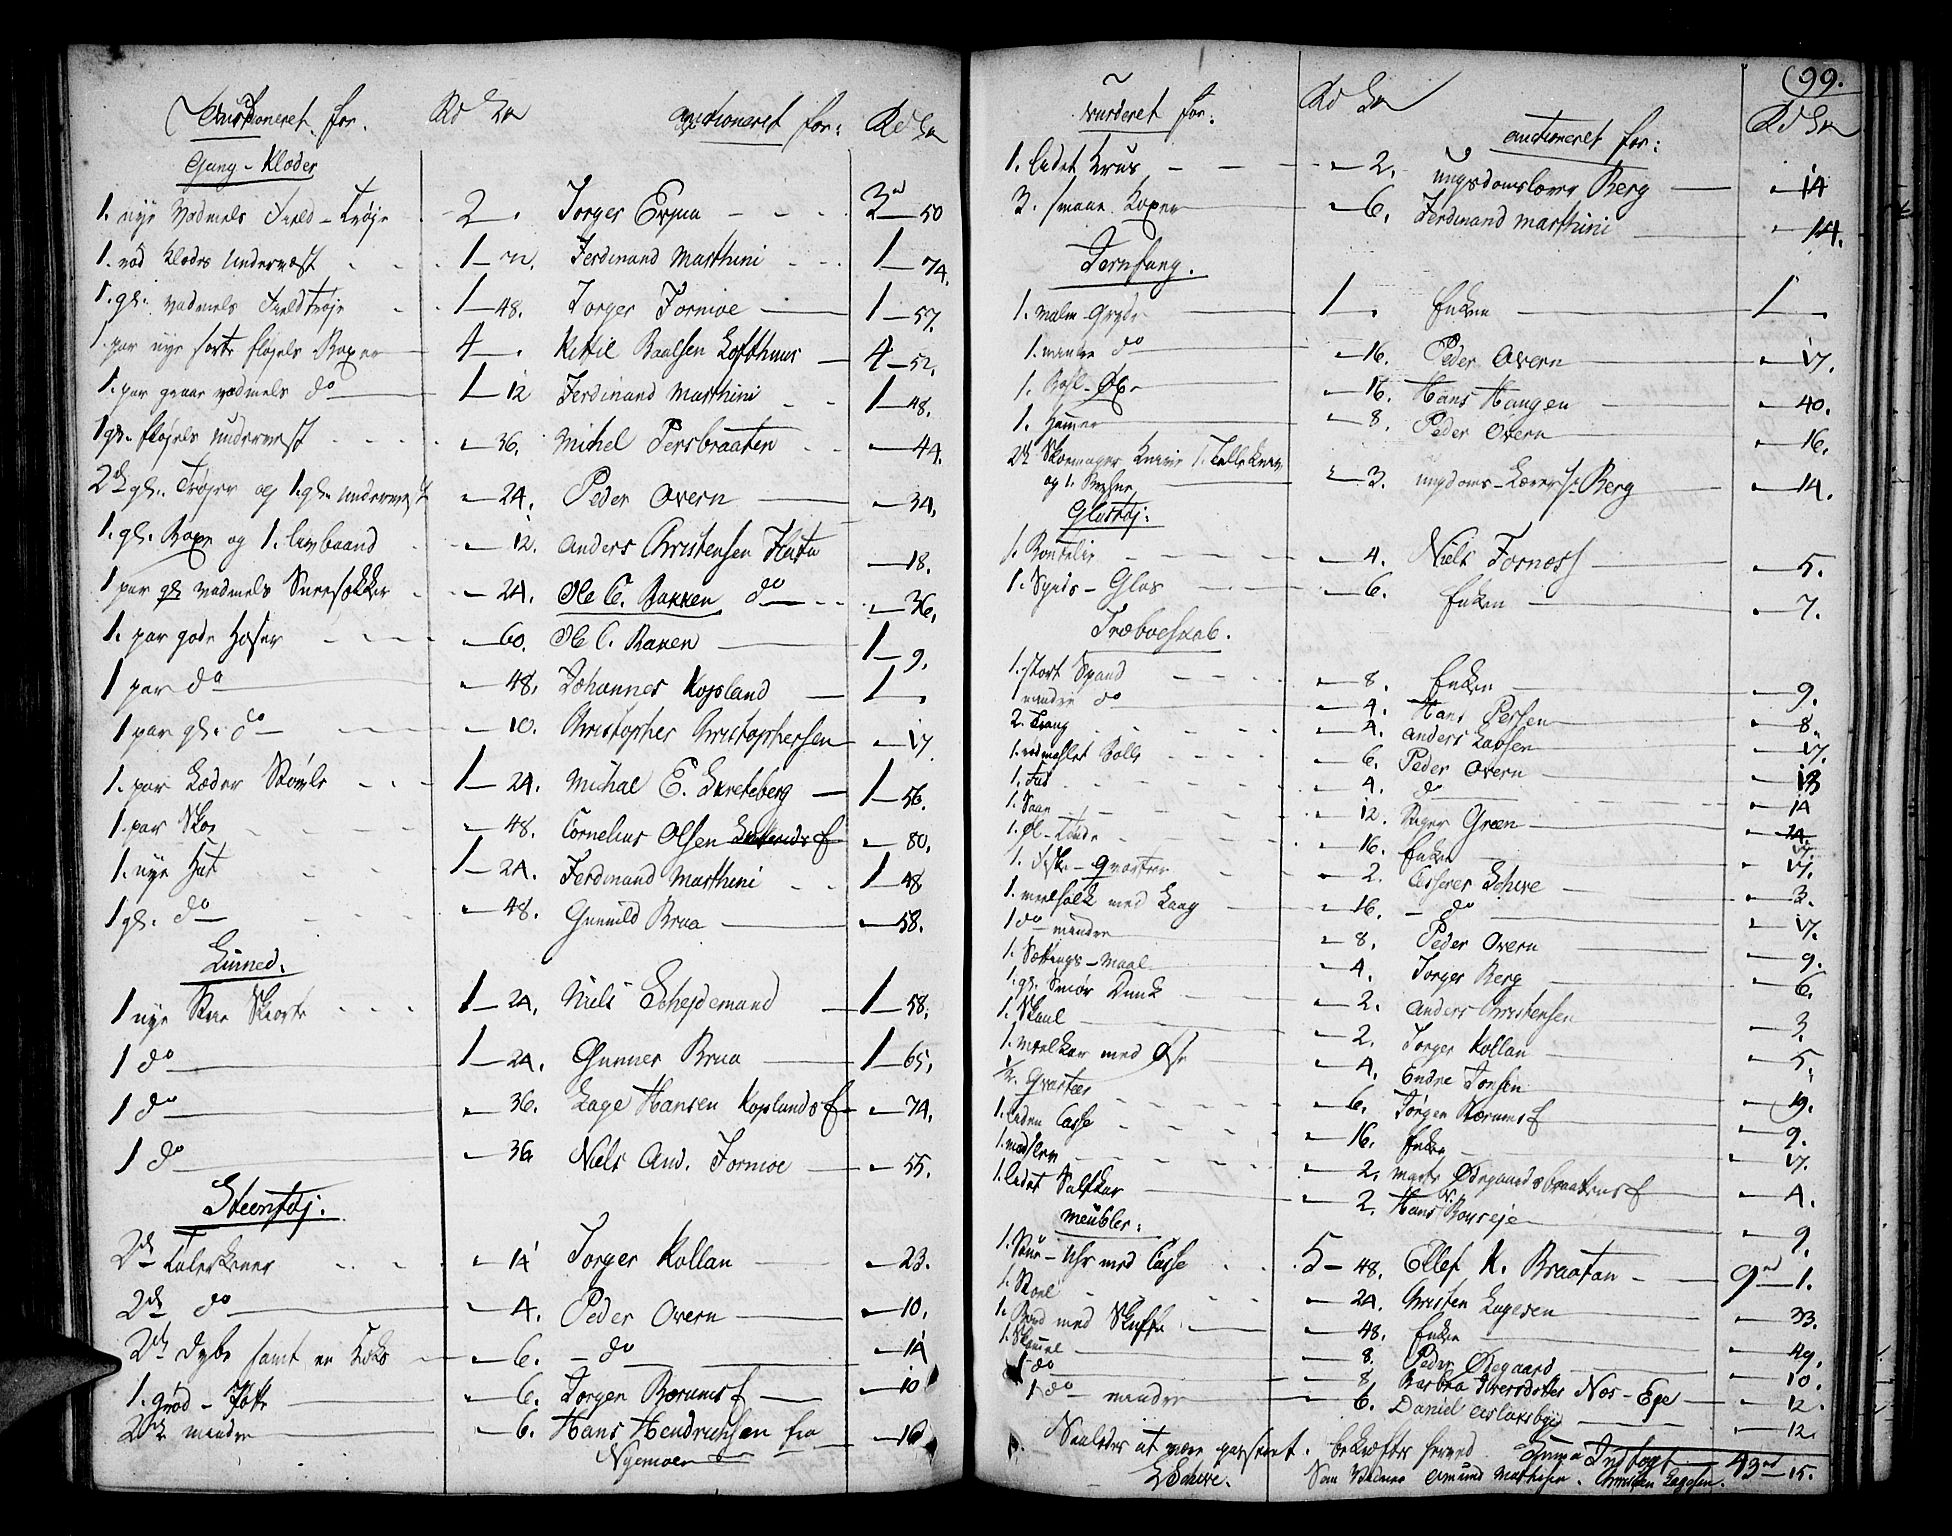 auctioneret for. Rd Sn auctioneret for: Rd Sn
Gang-Klæder
1. nye Vadmels Field-Trøje 2 - . Torger Evjua 3rd — 50
1. rød Klædes Undervæst 1 — 72. Ferdinand Marthini 1 — 74.
1. gl. Vadmels Fieldtrøje 1 — 48. Torger Formoe 1 — 57.
1. par nye sorte fløjels Boxer 4 — . Kittil Paalsen Lofthuus 4 — 52.
1. par graae vadmels do 1 — 12 Ferdinand Marthini 1 — 48.
1 gl. fløjels Undervest — 36. Michel Persbraaten — 44.
2de gl. Trøjer og 1. gl. undervest — 24. Peder Overn — 34.
1. gl. Boxe og 1. livbaand — 12. Anders Christensen Flata — 18.
1 par gl. vadmels Sneesokker — 24. Ole C. Bakken do — 36.
1. par gode Hoser — 60. Ole C. Baken 1 — 9.
1 par do — 48. Johannes Kopland 1 — .
1 par gl. do — 10. Christopher Christophersen — 17
1. par Læder Støvle 1 — 24. Michal E. Skreteberg 1 — 56.
1. par Skoe — 48. Cornelius Olsen — 80.
1. nye Hat 1 — 24. Ferdinand Marthini 1 — 48
1 gl. do — 48. Gunnild Brua — 58.
Linned.
1 nye Skiorte 1 — 24. Niels Schejdemand 1 — 58.
1 do 1 — 24. Gunner Brua 1 — 65.
1 do — 36. Lage Hansen Koplands — 74.
1 do — 36 Niels And. Formoe — 55.
Steentøj.
2de Talerkener — 14 Torger Kollan — 23.
2de do — 4. Peder Overn — 10.
2de dybe samt en — 6. — do — 14
1. Grød-Potte — 6. Jorgen Bærums — 10
2de mindre — 6. Hans Hendrichsen fra — 16
Nyemoen
99.
vurderet for. Rd Sn auctioneret for: Rd Sn
1. lidet Krus — 2. ungdomslærer Berg — 14
3. smaae Koper — 6. Ferdinand Marthini — 14.
Jernfang.
1. malm Gryde 1 — . Enken 1 — .
1. mindre do — 16. Peder Overn — 17.
1. Øxe — 16. Hans Haugen — 40.
1. Hamer — 8. Peder Overn — 16.
2de Skoemager Knive 1. Tælle Kniv
og 1. — 3. ungdoms-Lærer Sr Berg — 14.
Glastøj:
1. Bouteille — 4. Niels Forness — 5.
1. Spids-Glas — 6. Enken — 7.
Træboeskab.
1. stort Spand — 8. Enken — 9.
1 mindre do — 4. Hans Persen — 8.
2. Traug — 4. Anders Larsen — 17.
1. rødmahlet Bolle — 6. Peder Overn — 18
1. Fad — 4. do — 14
1. Saae — 12. Green — 24.
1. Øl-Tønde — 16. Enken — 17.
1. Fiske-Qvarteer — 2. Assesser Schive — 3.
1. med Laag — 16. — do — 17.
1 do mindre — 8. Peder Overn — 9.
1. Sættings-Maal — 4. Torger Berg — 6.
1. gl. Smør Dunk — 2. Anders Christensen — 3.
1. Skaal — 2. Torger Kollan — 5.
1. Melkar med Øse — 4. Endre Jonsen — 19.
1/2. Qvarteer — 6. Jørgen Bærums — 9.
1. liden Casse — 16. Enken — 17.
1. — 2. Marte Ødegaardsbraatens — 4.
1. lidet Saltkar — 2. Hans N. Borseje — 9.
Meubler:
1. Stue-Uhr med Casse 5 — 48. Ellef K. Braatan 9rd — 1.
1. Stoel — 24. Christen Lagesen — 33.
1. Bord med Skuffe — 48. Enken — 49.
1. Skammel — 8. Peder Ødegaard — 10.
1 do — 8. Barbra Iversdotter Nos-Ege — 12.
1 do mindre — 6. Daniel Aslaksbye — 12
Saaledes at være passeret. bekræftes herved Summa Indtægt 43rd — 15.
L Schive. Som Vidner Amund Mathisen. Christen Lagesen.